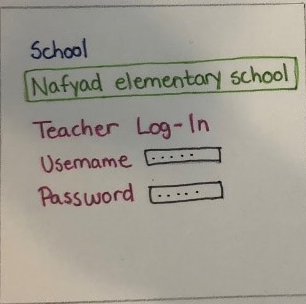 School
Nafyad elementary school
Teacher Log-In
Username .....
Password .....